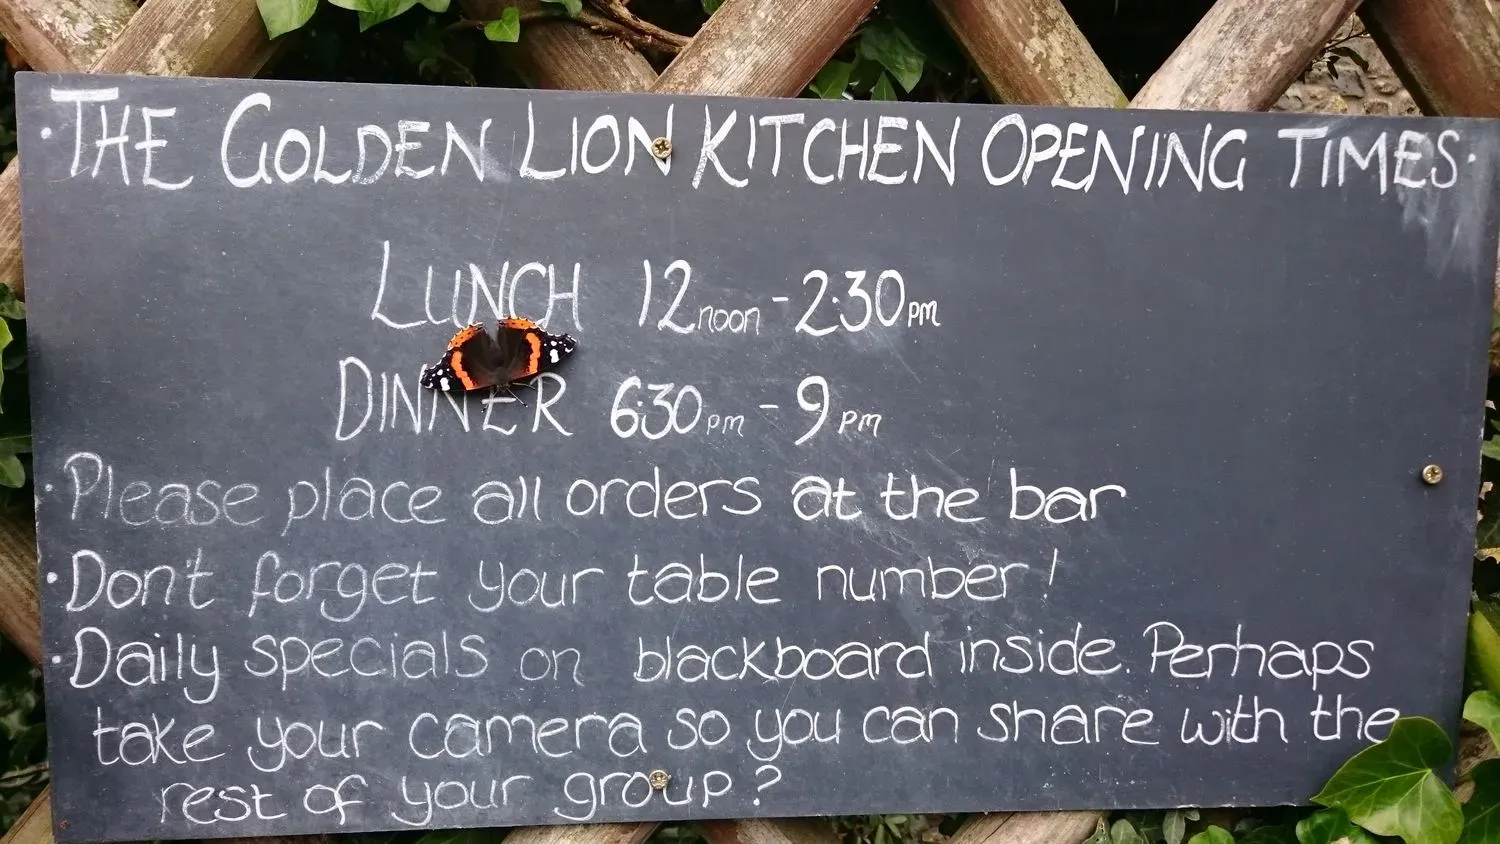 ·THE GOLDEN LION KITCHEN OPENING TIMES·
LUNCH 12noon - 2:30pm
DINNER 6:30pm - 9pm
·Please place all orders at the bar
·Don't forget your table number!
·Daily specials on blackboard inside. Perhaps
take your camera so you can share with the
rest of your group?